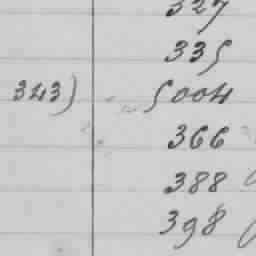 327
335
343) 5004
366
388
398